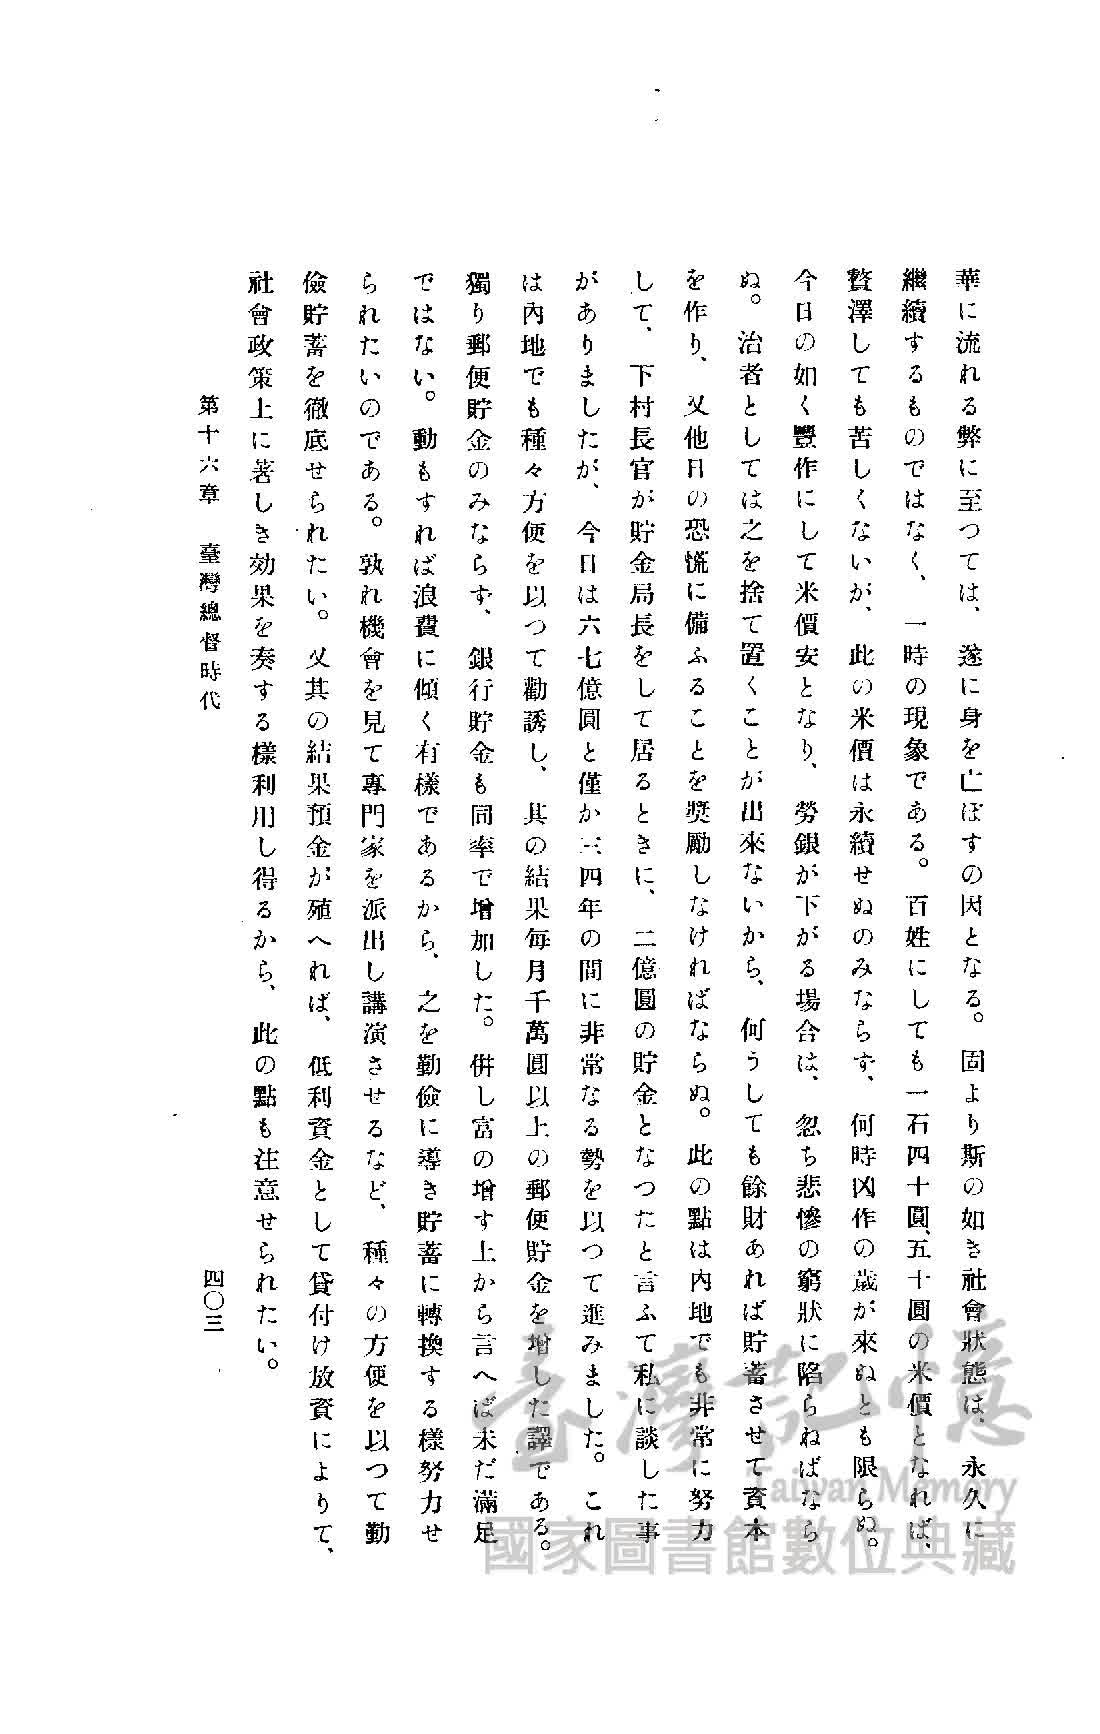 華に流れる弊に至つては、遂に身を亡ぼすの因となる。固より斯の如き社會狀態は、永久に
繼續するものではなく、一時の現象である。百姓にしても一石四十圓、五十圓の米價となれば、
贅澤しても苦しくないが、此の米價は永續せぬのみならず、何時凶作の歲が來ぬとも限らぬ。
今日の如く豐作にして米價安となり、勞銀が下がる場合は、忽ち悲慘の窮狀に陷らねばなら
ぬ。治者としては之を捨て置くことが出來ないから、何うしても餘財あれば貯蓄させて資本
を作り、又他日の恐慌に備ふることを奬勵しなければならぬ。此の點は內地でも非常に努力
して、下村長官が貯金局長をして居るときに、二億圓の貯金となつたと言ふて私に談した事
がありましたが、今日は六七億圓と僅か三四年の間に非常なる勢を以つて進みました。これ
は內地でも種々方便を以つて勸誘し、其の結果每月千萬圓以上の郵便貯金を增した譯である。
獨り郵便貯金のみならず、銀行貯金も同率で增加した。併し富の增す上から言へば未だ滿足
ではない。動もすれば浪費に傾く有樣であるから、之を勤儉に導き貯蓄に轉換する樣努力せ
られたいのである。孰れ機會を見て專門家を派出し講演させるなど、種々の方便を以つて勤
儉貯蓄を徹底せられたい。又其の結果預金が殖へれば、低利資金として貸付け放資によりて、
社會政策上に著しき効果を奏する樣利用し得るから、此の點も注意せられたい。
第十六章 臺灣總督時代
四〇三
臺灣記憶
Taiwan Memory
國家圖書館數位典藏